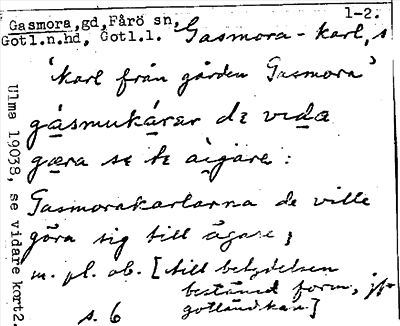 Gasmora,gd,Fårö sn, 1-2.
Gotl.n.hd, Gotl.l. Gasmora-karl, s
'karl från gården Gasmora'
gásmukárar dε vıda
gœra sε tε aigara:
Gasmorakarlarna de ville
göra sig till ägare;
m. pl. ob. [till betydelsen
bestämd form, jfr
gotländskan.]
s. 6
Ulma 19038, se vidare kort2.